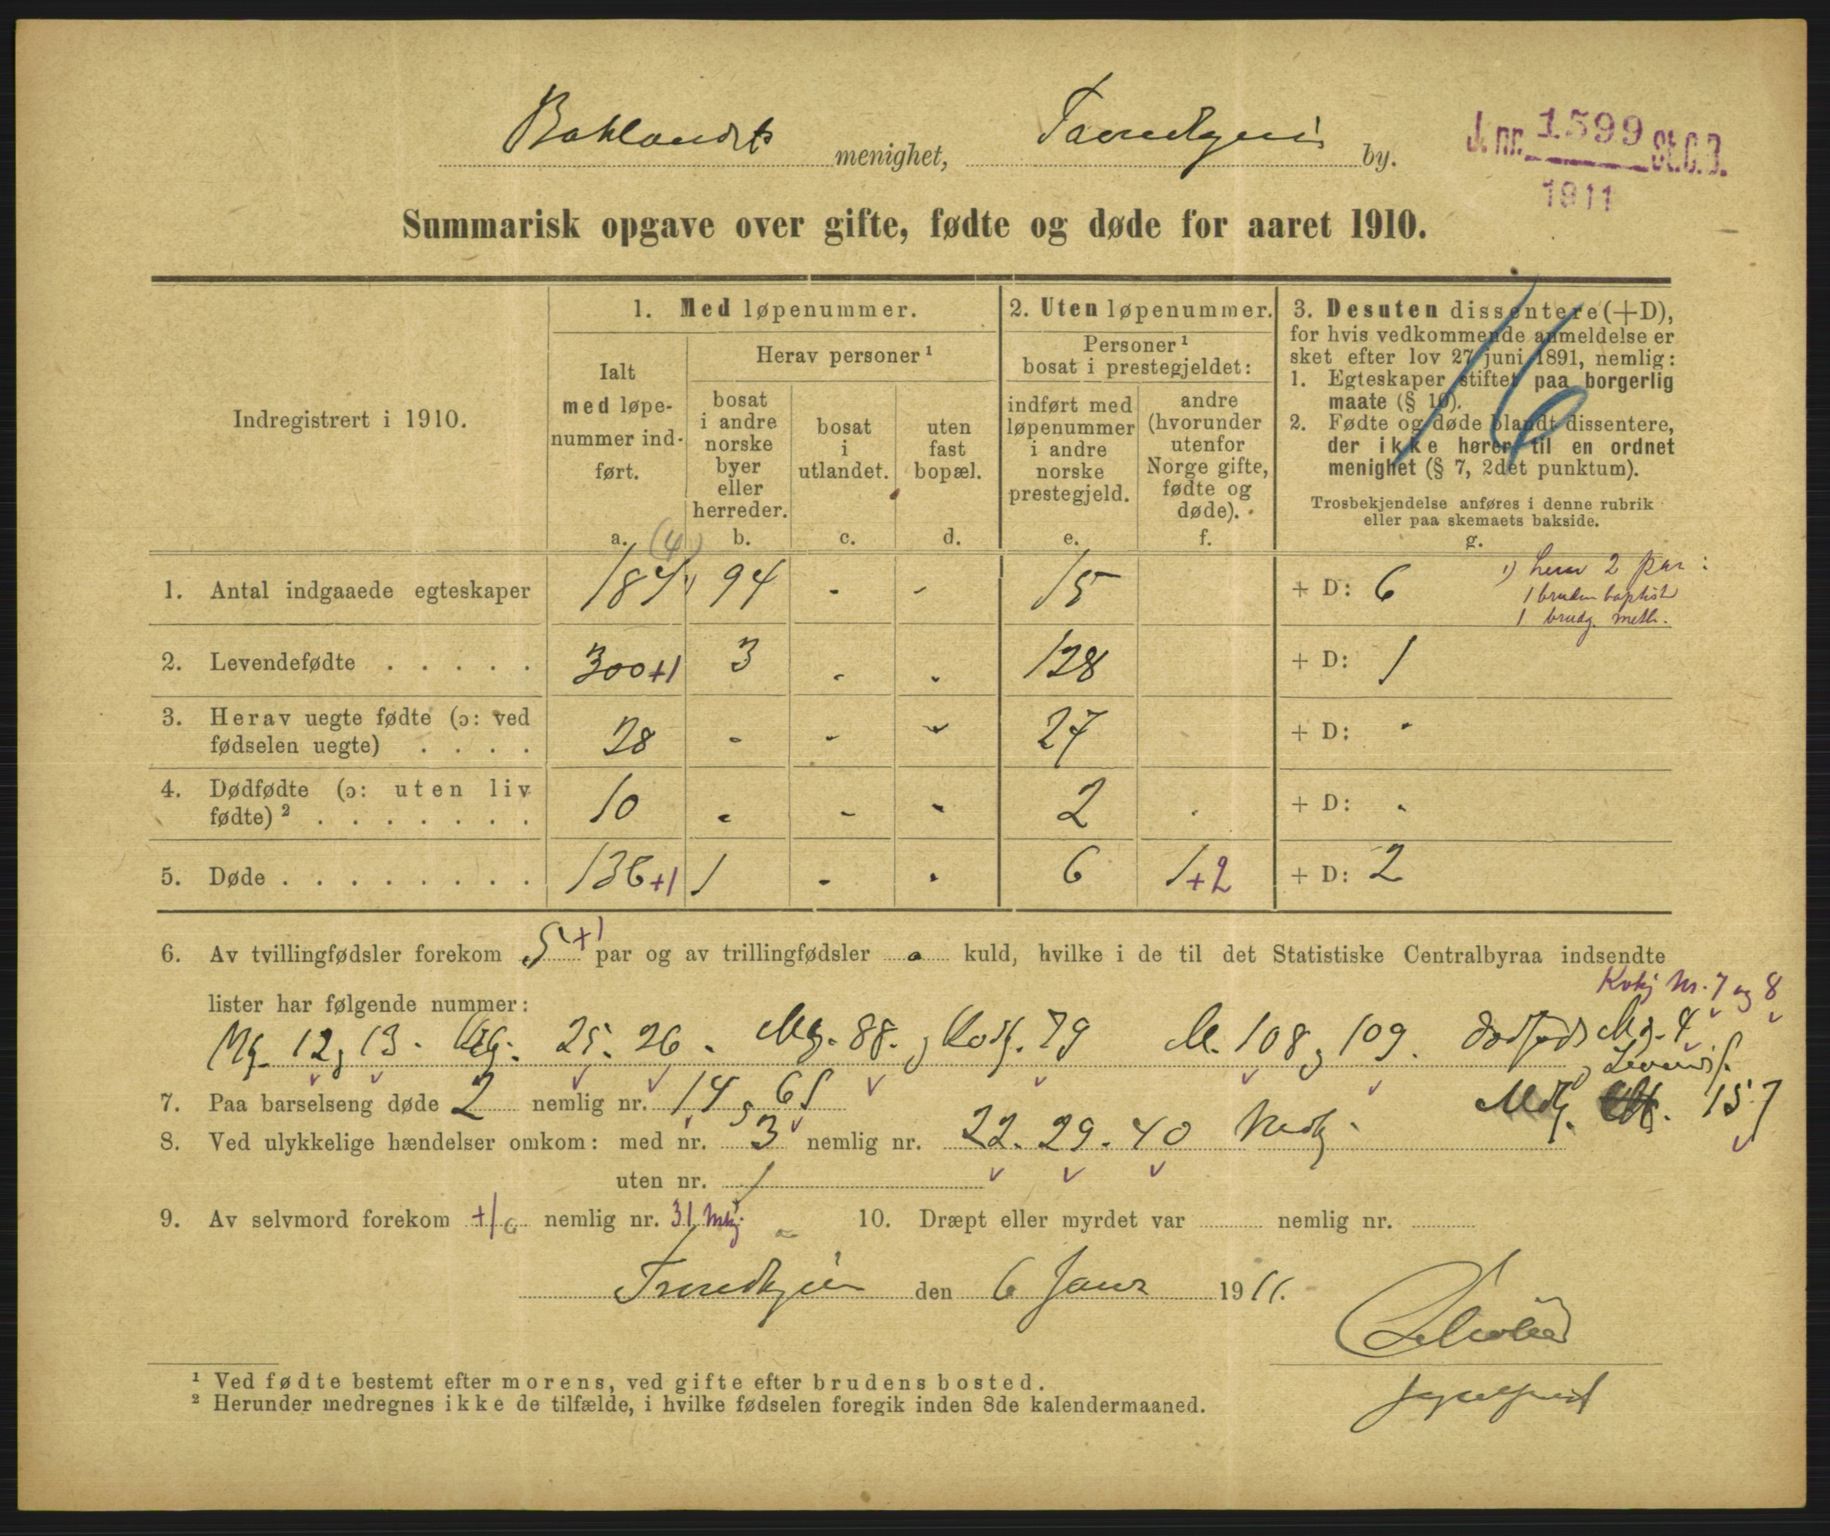 Baklandets menighet, Trondhjem by.
J. nr. 1599 St. C. B.
1911
Summarisk opgave over gifte, fødte og døde for aaret 1910.
Indregistrert i 1910.
1. Med løpenummer.
Ialt med løpe-nummer ind-ført.
a.
Herav personer ¹
bosat i andre norske byer eller herreder.
b.
bosat i utlandet.
c.
uten fast bopæl.
d.
2. Uten løpenummer.
Personer ¹ bosat i prestegjeldet:
indført med løpenummer i andre norske prestegjeld.
e.
andre (hvorunder utenfor Norge gifte, fødte og døde).
f.
3. Desuten dissentere (+D),
for hvis vedkommende anmeldelse er
sket efter lov 27 juni 1891, nemlig:
1. Egteskaper stiftet paa borgerlig
maate (§ 10).
2. Fødte og døde blandt dissentere,
der ikke hører til en ordnet
menighet (§ 7, 2det punktum).
Trosbekjendelse anføres i denne rubrik
eller paa skemaets bakside.
g.
16
(4)
1. Antal indgaaede egteskaper 184 ¹) 94 - - 15 + D: 6
¹) herav 2 par:
1 bruden baptist
1 brudg. meth.
2. Levendefødte . . . . . 300+1 3 - - 128 + D: 1
3. Herav uegte fødte (ɔ: ved
fødselen uegte) . . . . 28 - - - 27 + D: -
4. Dødfødte (ɔ: uten liv
fødte) ² . . . . . . . 10 - - - 2 . + D: -
5. Døde . . . . . . . . 136+1 1 - - 6 1+2 + D: 2
6. Av tvillingfødsler forekom 5+1 par og av trillingfødsler - kuld, hvilke i de til det Statistiske Centralbyraa indsendte
Kvkj Nr. 7 og 8
lister har følgende nummer:
Mg. 12, 13. 25. 26. Mg. 88. 79 M. 108, 109. dødfødt Mg. 4
Levendef.
157
7. Paa barselseng døde 2 nemlig nr. 14, 65
8. Ved ulykkelige hændelser omkom: med nr. 3 nemlig nr. 22. 29. 40 Mdkj.
uten nr. 1
9. Av selvmord forekom +1 0 nemlig nr. 31 Mkj. - 10. Dræpt eller myrdet var nemlig nr.
Trondhjem den 6 Janr 1911.
¹ Ved fødte bestemt efter morens, ved gifte efter brudens bosted.
² Herunder medregnes ikke de tilfælde, i hvilke fødselen foregik inden 8de kalendermaaned.